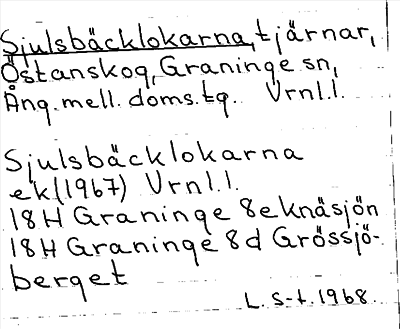 Sjulsbäcklokarna, tjärnar,
Östanskog, Graninge sn,
Ång. mell. doms. tg. Vrnl.l.
Sjulsbäcklokarna
ek (1967) Vrnl.l.
18H Graninge 8e Knäsjön
18H Graninge 8d Grössjö-
berget
L. S-t. 1968.